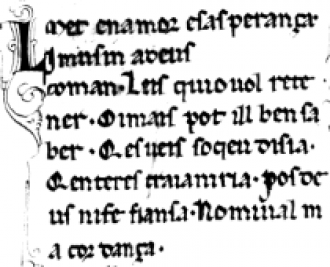 Lover en amor esasperança
mi us in a deus
coman. Leis qui o uol rete
ner. Oimais pot ill ben sa
ber. Q es ueis so qeu disia.
Q enteres era i aniria. pos de
us ni fe fiansa. No mi ual m
a cor dança.